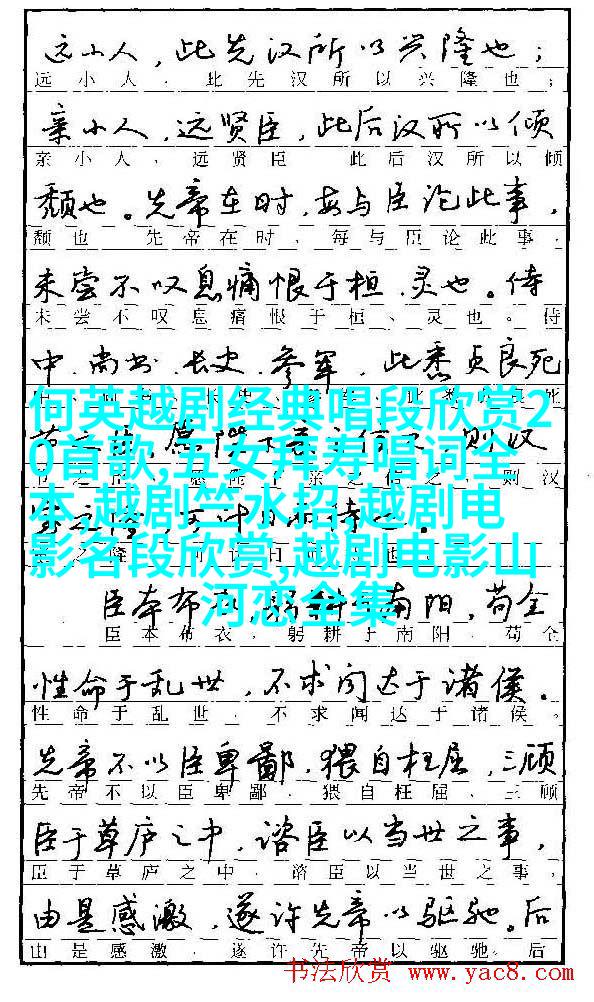 远小人，此先汉所以兴隆也；
远小人，此先汉所以兴隆也；
亲小人，远贤臣，此后汉所以倾
亲小人，远贤臣 此后汉所以倾
颓也。先帝在时，每与臣论此事，
颓也 先帝在时，每与臣论此事，
未尝不叹息痛恨于桓、灵也。侍
未尝不叹息痛恨于桓、灵也。侍
中、尚书、长史、参军，此悉贞良死
何英越剧经典唱段欣赏2
0首歌,五女拜寿唱词全
本,越剧竺水招,越剧电
影名段欣赏,越剧电影山
河恋全集
则汉
则汉
臣本布衣，躬耕于南阳，苟全
臣本布衣，躬耕于南阳，苟全
性命于乱世，不求闻达于诸侯。
性命于乱世，不求闻达于诸侯。
先帝不以臣卑鄙，猥自枉屈，三顾
先帝不以臣卑鄙，猥自枉屈、三顾
臣于草庐之中，谘臣以当世之事，
臣于草庐之中，谘臣以当世之事，
由是感激，遂许先帝以驱驰。后
由是感激，遂许先帝以驱驰。后
书法欣赏 www.yac8.com